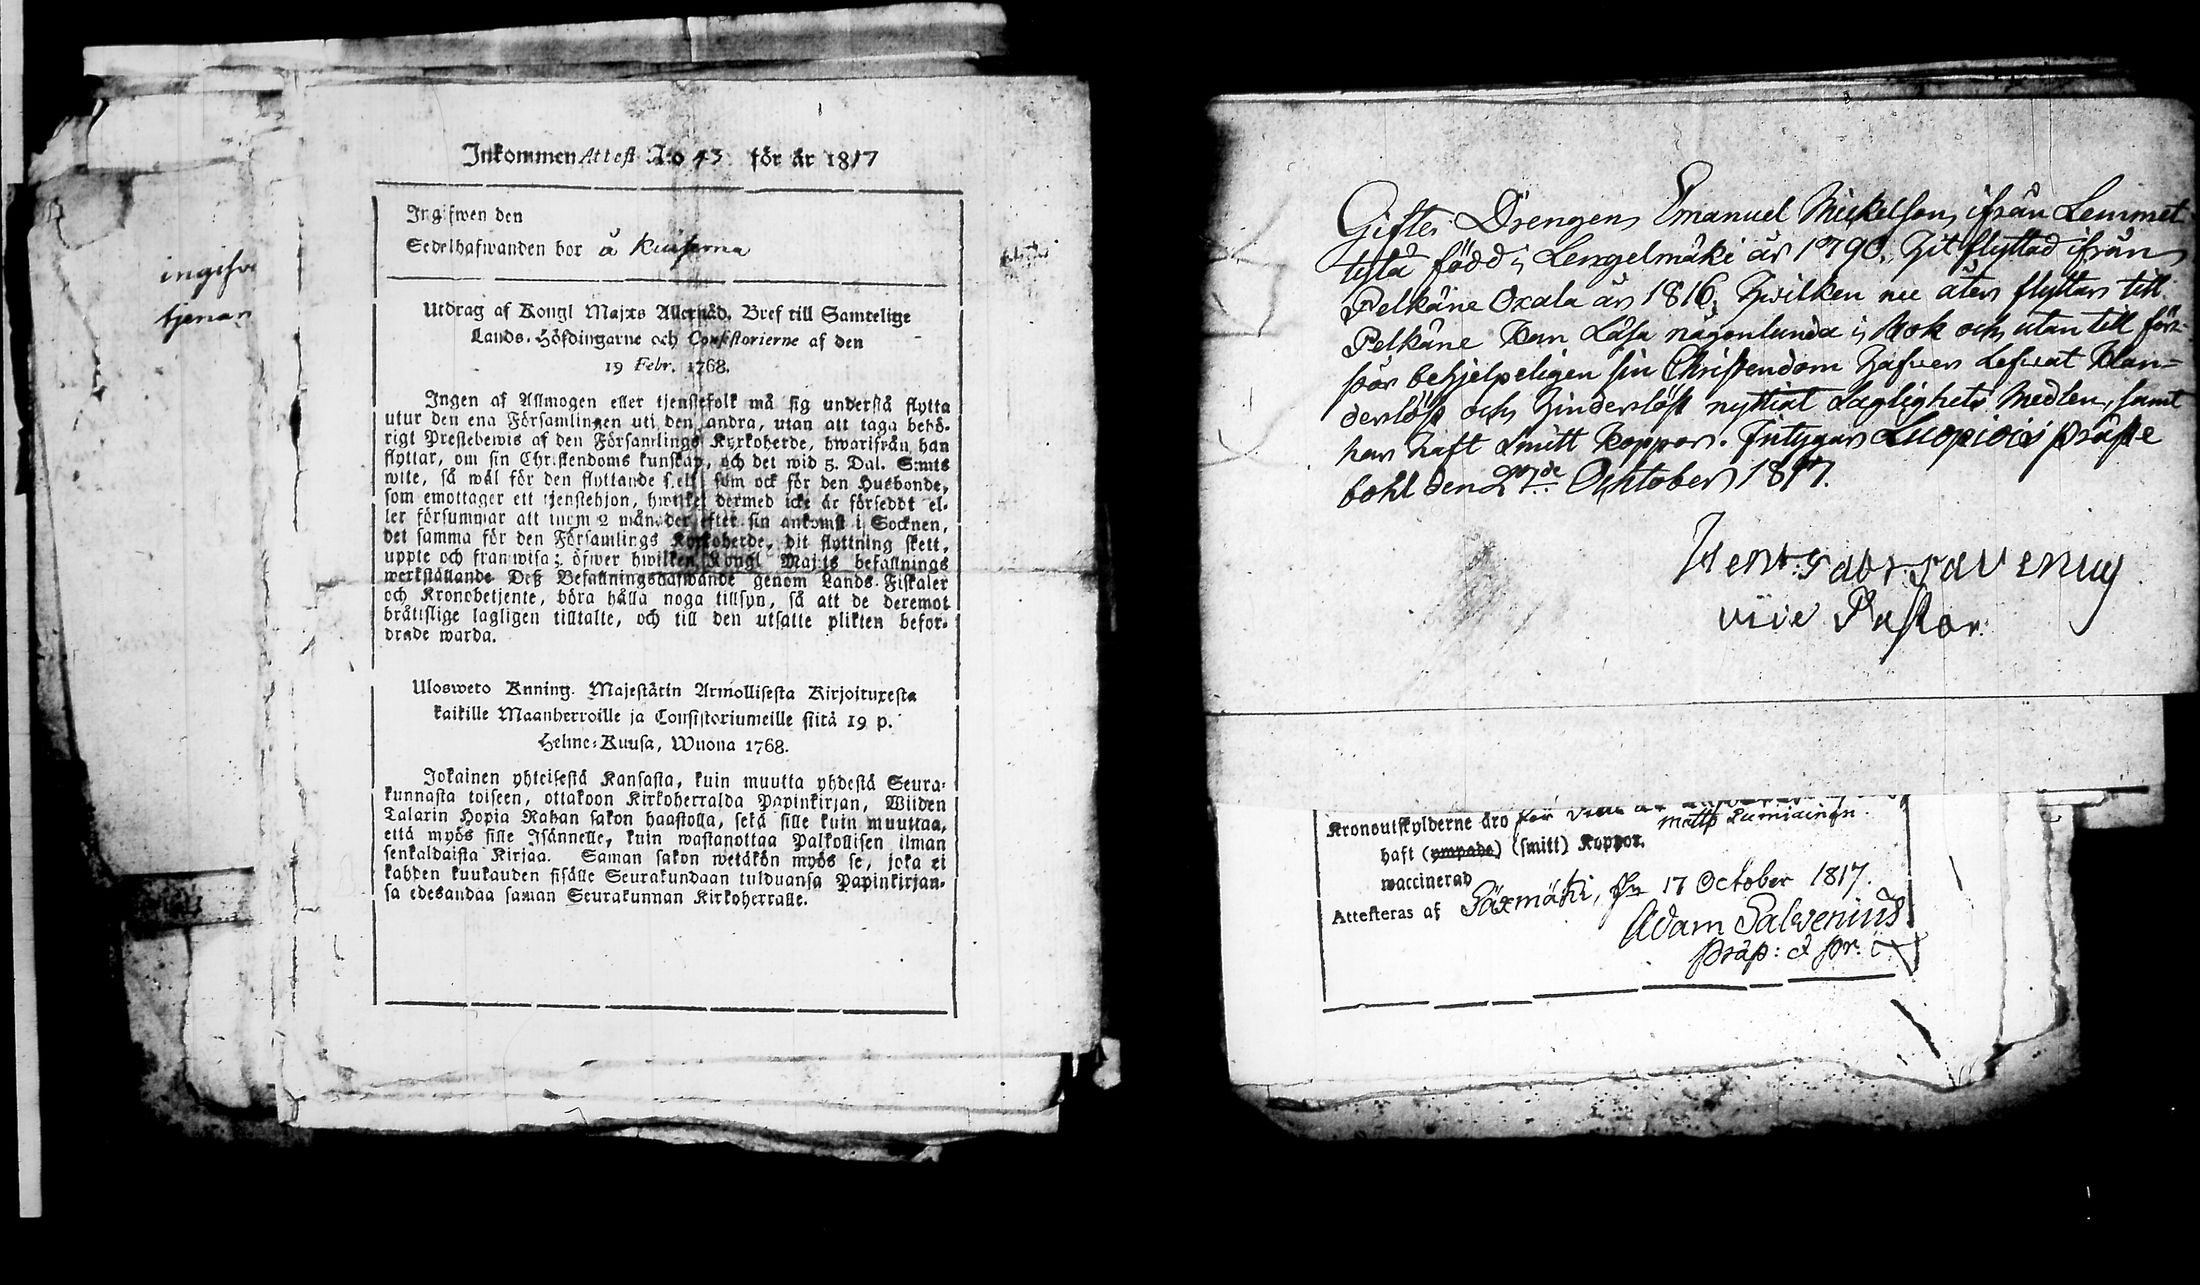 ingifv
tjenar
Inkommen Attest N:o 43 för år 1817
Ingifwen den
Sedelhafwanden bor å
Utdrag af Kongl Maj:ts Allernåd. Bref till Samtelige
Lands-Höfdingarne och Consistorierne af den
19 Febr. 1768.
Ingen af Allmogen eller tjenstefolk må sig understå flytta
utur den ena Församlingen uti den andra, utan att taga behö-
rigt Prestebewis af den Församlings Kyrkoherde, hwarifrån han
flyttar, om sin Christendoms kunskap, och det wid 5. Dal. S:mts
wite, så wäl för den flyttande sielf som ock för den Husbonde,
som emottager ett tjenstehjon, hwilket dermed icke är försedt el-
ler försummar att inom 2 månader efter sin ankomst i Socknen,
det samma för den Församlings Kyrkoherde, dit flyttning skett,
uppte och framwisa; öfwer hwilken Kongl Maj:ts befallnings
werkställande Deß Befallningshafwande genom Lands-Fiskaler
och Kronobetjente, böra hålla noga tillsyn, så att de deremot
bråttslige lagligen tilltalte, och till den utsatte plikten befor-
drade warda.
Ulosweto Kuning. Majestätin Armollisesta Kirjoituxesta
kaikille Maanherroille ja Consistoriumeille siitä 19 p.
Helme-Kuusa, Wuona 1768.
Jokainen yhteisestä Kansasta, kuin muutta yhdestä Seura-
kunnasta toiseen, ottakoon Kirkoherralda Papinkirjan, Wiiden
Talarin Hopia Rahan sakon haastolla, sekä sille kuin muuttaa,
että myös sille Isännelle, kuin wastanottaa Palkollisen ilman
senkaldaista Kirjaa. Saman sakon wetäkön myös se, joka ei
kahden kuukauden sisälle Seurakundaan tulduansa Papinkirjan-
sa edesandaa saman Seurakunnan Kirkoherralle.
Gifte Drengen Emanuel Mickelson ifrån Lemmet
tylä född i Lengelmäki år 1790. Hit flyttad ifrån
Pelkäne Oxala år 1816, Hwilken nu åter flyttar till
Pelkäne kan Läsa någonlunda i Bok och utan till för-
står behjelpeligen sin Christendom Hafver Lefvat klan-
derlöst och Hinderlöst nyttiat Saglighets Medlen, samt
har Haft Smitt koppor. Intygar Luopiois präste
bohl den 27de Ocktober 1817.
Henr: Gabr: Tavenius
vice Pastor.
Kronoutskylderne äro för
Matts Lumiainen.
haft (ympade) (smitt) Koppor.
waccinerad
Attesteras af Säxmäki, den 17 October 1817.
Adam Salvenius
Præp: &